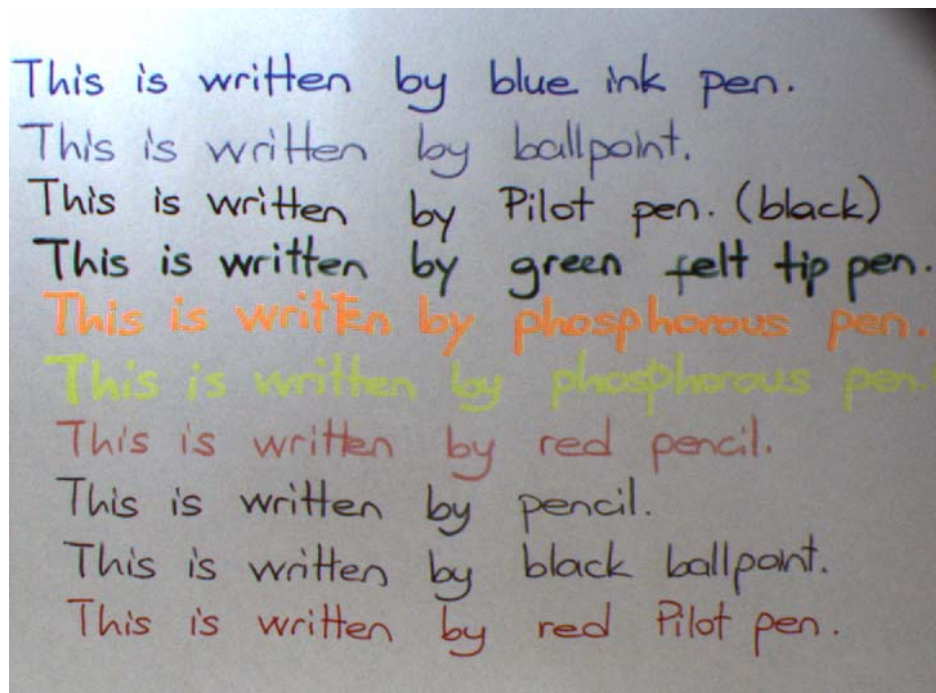 This is written by blue ink pen.
This is written by ballpoint.
This is written by Pilot pen. (black)
This is written by green felt tip pen.
This is written by phosphorous pen.
This is written by phosphorous pen.
This is written by red pencil.
This is written by pencil.
This is written by black ballpoint.
This is written by red Pilot pen.